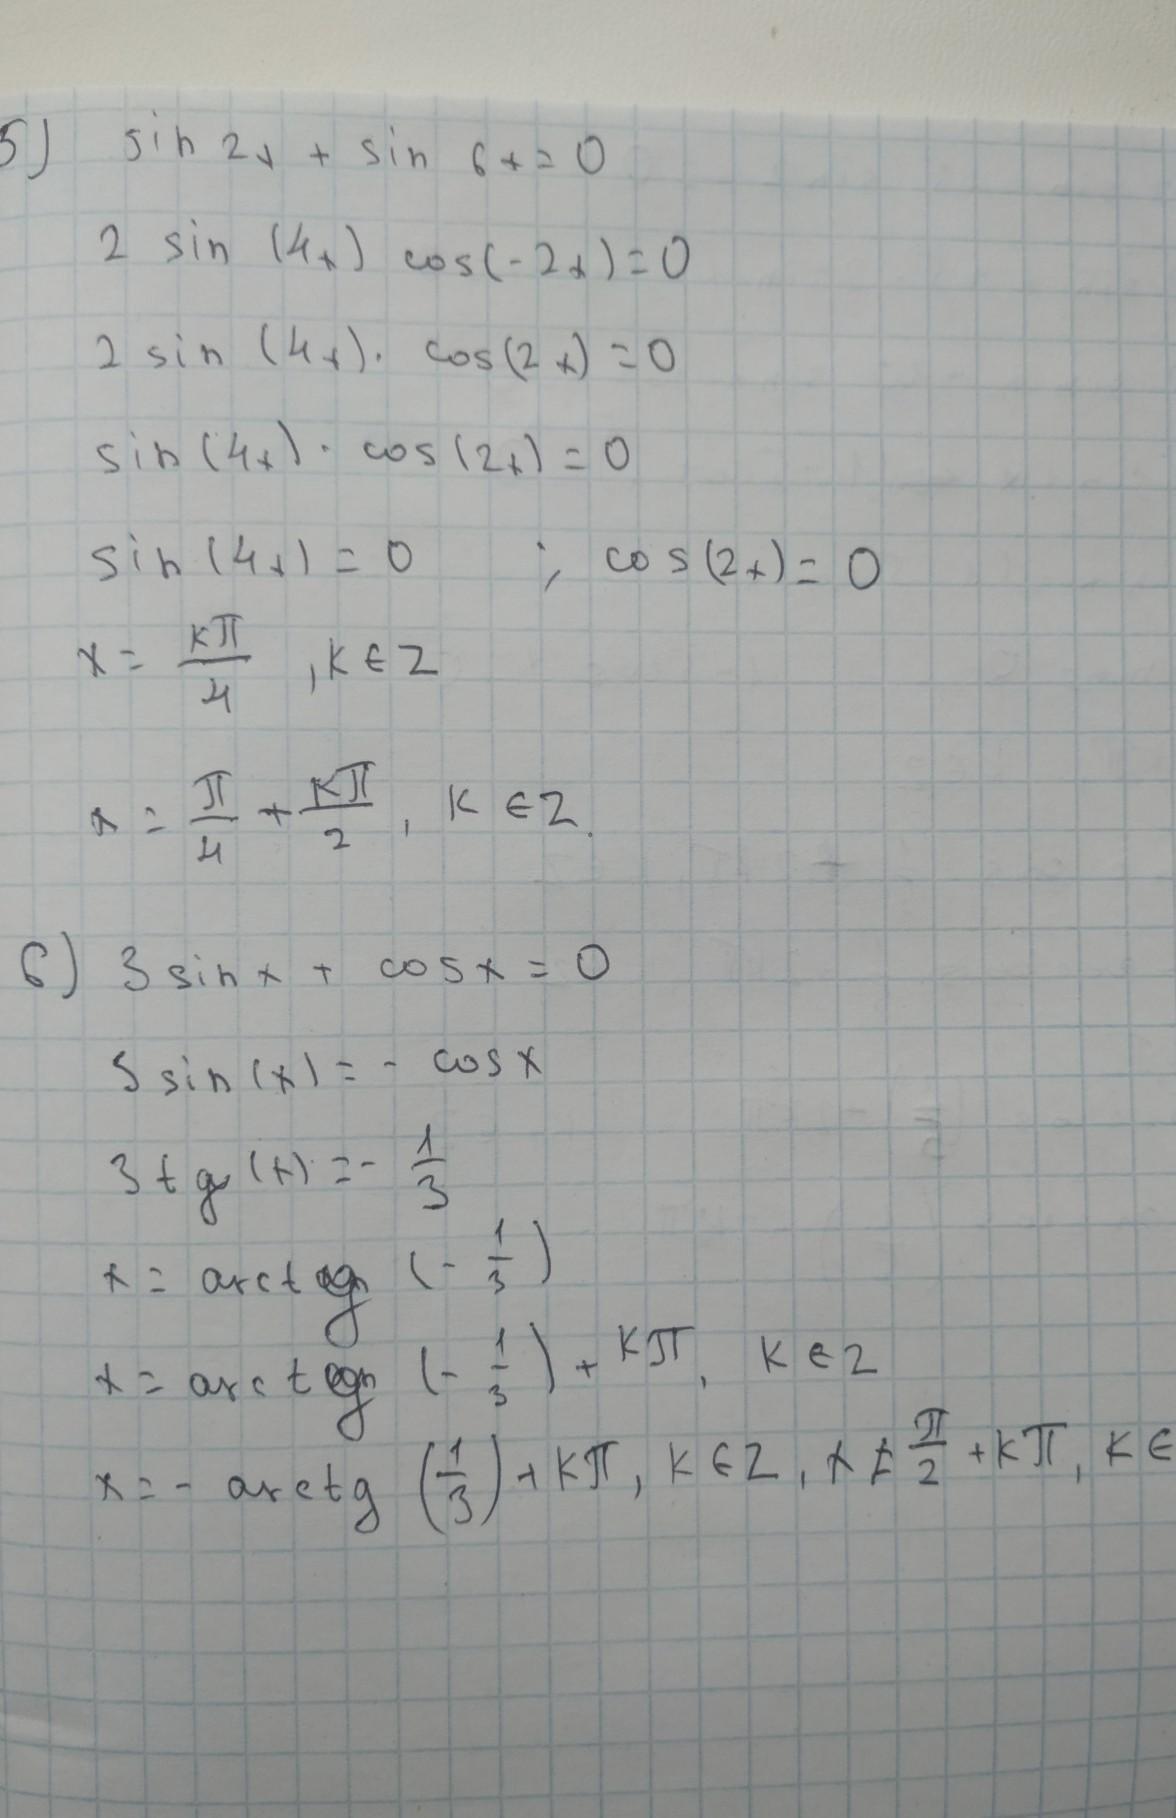 5) sin 2x + sin 6x = 0
2 sin (4x) cos(-2x) = 0
2 sin (4x) · cos(2x) = 0
sin (4x) · cos(2x) = 0
sin (4x) = 0 ; cos(2x) = 0
x = kπ/4 , k ∈ Z
x = π/4 + kπ/2 , k ∈ Z.
6) 3 sin x + cos x = 0
3 sin (x) = - cos x
3 tg (x) = - 1/3
x = arctg (- 1/3)
x = arctg (- 1/3) + kπ, k ∈ Z
x = - arctg (1/3) + kπ, k ∈ Z, x ≠ π/2 + kπ, k ∈